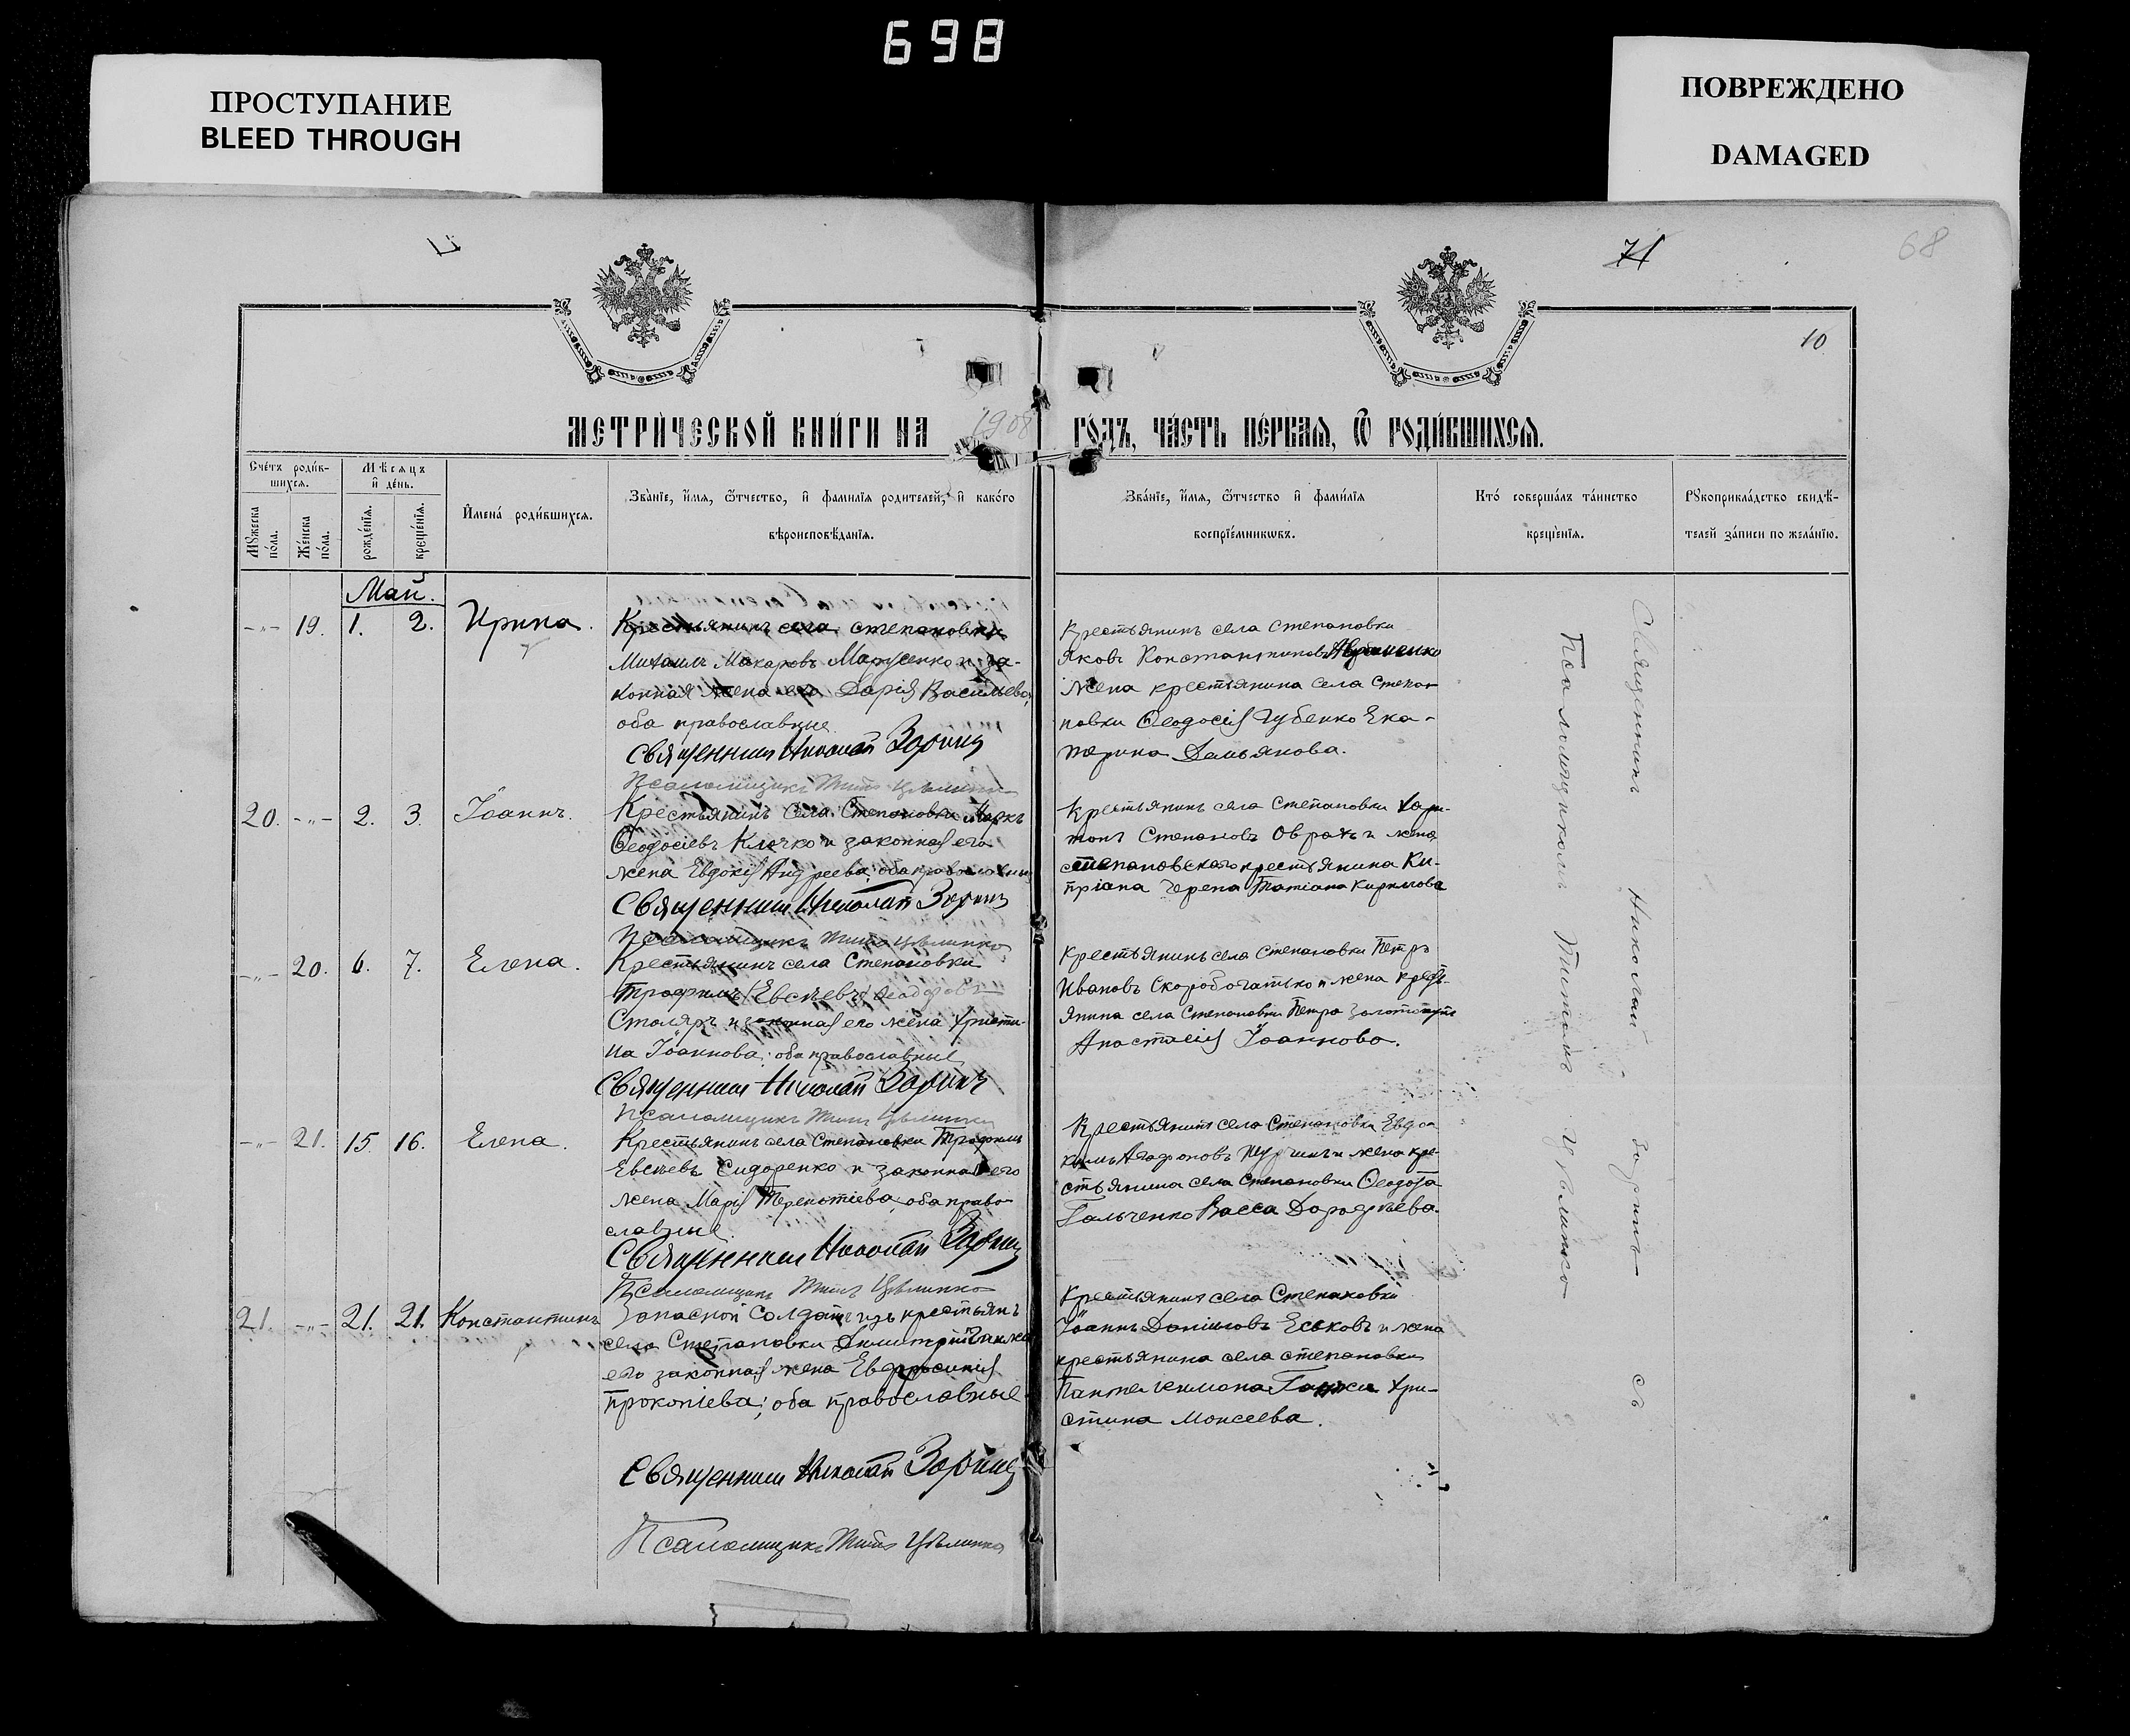 698
ПРОСТУПАНИЕ
BLEED THROUGH
ПОВРЕЖДЕНО
DAMAGED
71
68
10
МЕТРИ́ЧЕСКОЙ КНИ́ГИ НА 1908 ГО́ДЪ, ЧА́СТЬ ПЕ́РВАЯ, Ѿ РОДИ́ВШИХСЯ.
Сче́тъ роди́в-
шихся.
Мѣсяцъ
и҆ де́нь.
Мꙋжеска
по́ла.
Же́нска
по́ла.
рожде́нїя.
креще́нїя.
И҆мена̀ роди́вшихся.
Зва́нїе, и҆́мя, ѻ҆́тчество, и҆ фами́лїя родителей, и҆ како́го
вѣроисповѣ́данїя.
Зва́нїе, и҆́мя, ѻ҆́тчество и҆ фами́лїя
воспрїе́мникѡвъ.
Кто̀ соверша́лъ та́инство
креще́нїя.
Рꙋкоприкла́дство свидѣ́-
телей за́писи по жела́нїю.
Май.
-„- 19. 1. 2. Ирина.
Крестьянинъ села Степановки
Михаилъ Макаровъ Марусенко и за-
конная жена его Дарія Васильева,
оба православные
Священникъ Николай Зоринъ
Псаломщикъ Титъ Цѣлинко
Крестьянинъ села Степановки
Яковъ Константиновъ Авраменко
жена крестьянина села Степа-
новки Ѳеодосія Губенко Ека-
терина Дамьянова.
20. -„- 2. 3. Іоаннъ.
Крестьянинъ села Степановки Маркъ
Ѳеодосіевъ Клочко и законная его
жена Евдокія Андреева; оба православные
Священникъ Николай Зоринъ
Псаломщикъ Титъ Цѣлинко
Крестьянинъ села Степановки Хари-
тонъ Степановъ Оврахъ и жена
степановскаго крестьянина Ки-
пріана Черепа Татіана Кирилова
-„- 20. 6. 7. Елена.
Крестьянинъ села Степановки
Трофимъ (Евсѣевъ) Ѳеодоровъ
Столяръ и законная его жена Христи-
на Іоаннова; оба православные
Священникъ Николай Зоринъ
Псаломщикъ Титъ Цѣлинко
Крестьянинъ села Степановки Петръ
Ивановъ Скоробогатько и жена кресть-
янина села Степановки Петра
Анастасія Іоаннова.
-„- 21. 15. 16. Елена.
Крестьянинъ села Степановки Трофимъ
Евсѣевъ Сидоренко и законная его
жена Марія Терентіева; оба право-
славные.
Священникъ Николай Зоринъ
Псаломщикъ Титъ Цѣлинко
Крестьянинъ села Степановки Евдо-
кимъ Агафоновъ и жена кре-
стьянина села Степановки Ѳеодота
Гальченко Васса Дорофѣева.
21. -„- 21. 21. Константинъ
Запасной солдатъ изъ крестьянъ
села Степановки Димитрій
его законная жена Евфросинія
Прокопіева; оба православные
Священникъ Николай Зоринъ
Псаломщикъ Титъ Цѣлинко
Крестьянинъ села Степановки
Іоаннъ Даніиловъ Еськовъ и жена
крестьянина села Степановки
Пантелеимона Ганжа Хри-
стина Моисеева.
Священникъ Николай Заринъ съ
Псаломщикомъ Титомъ Цѣлинко